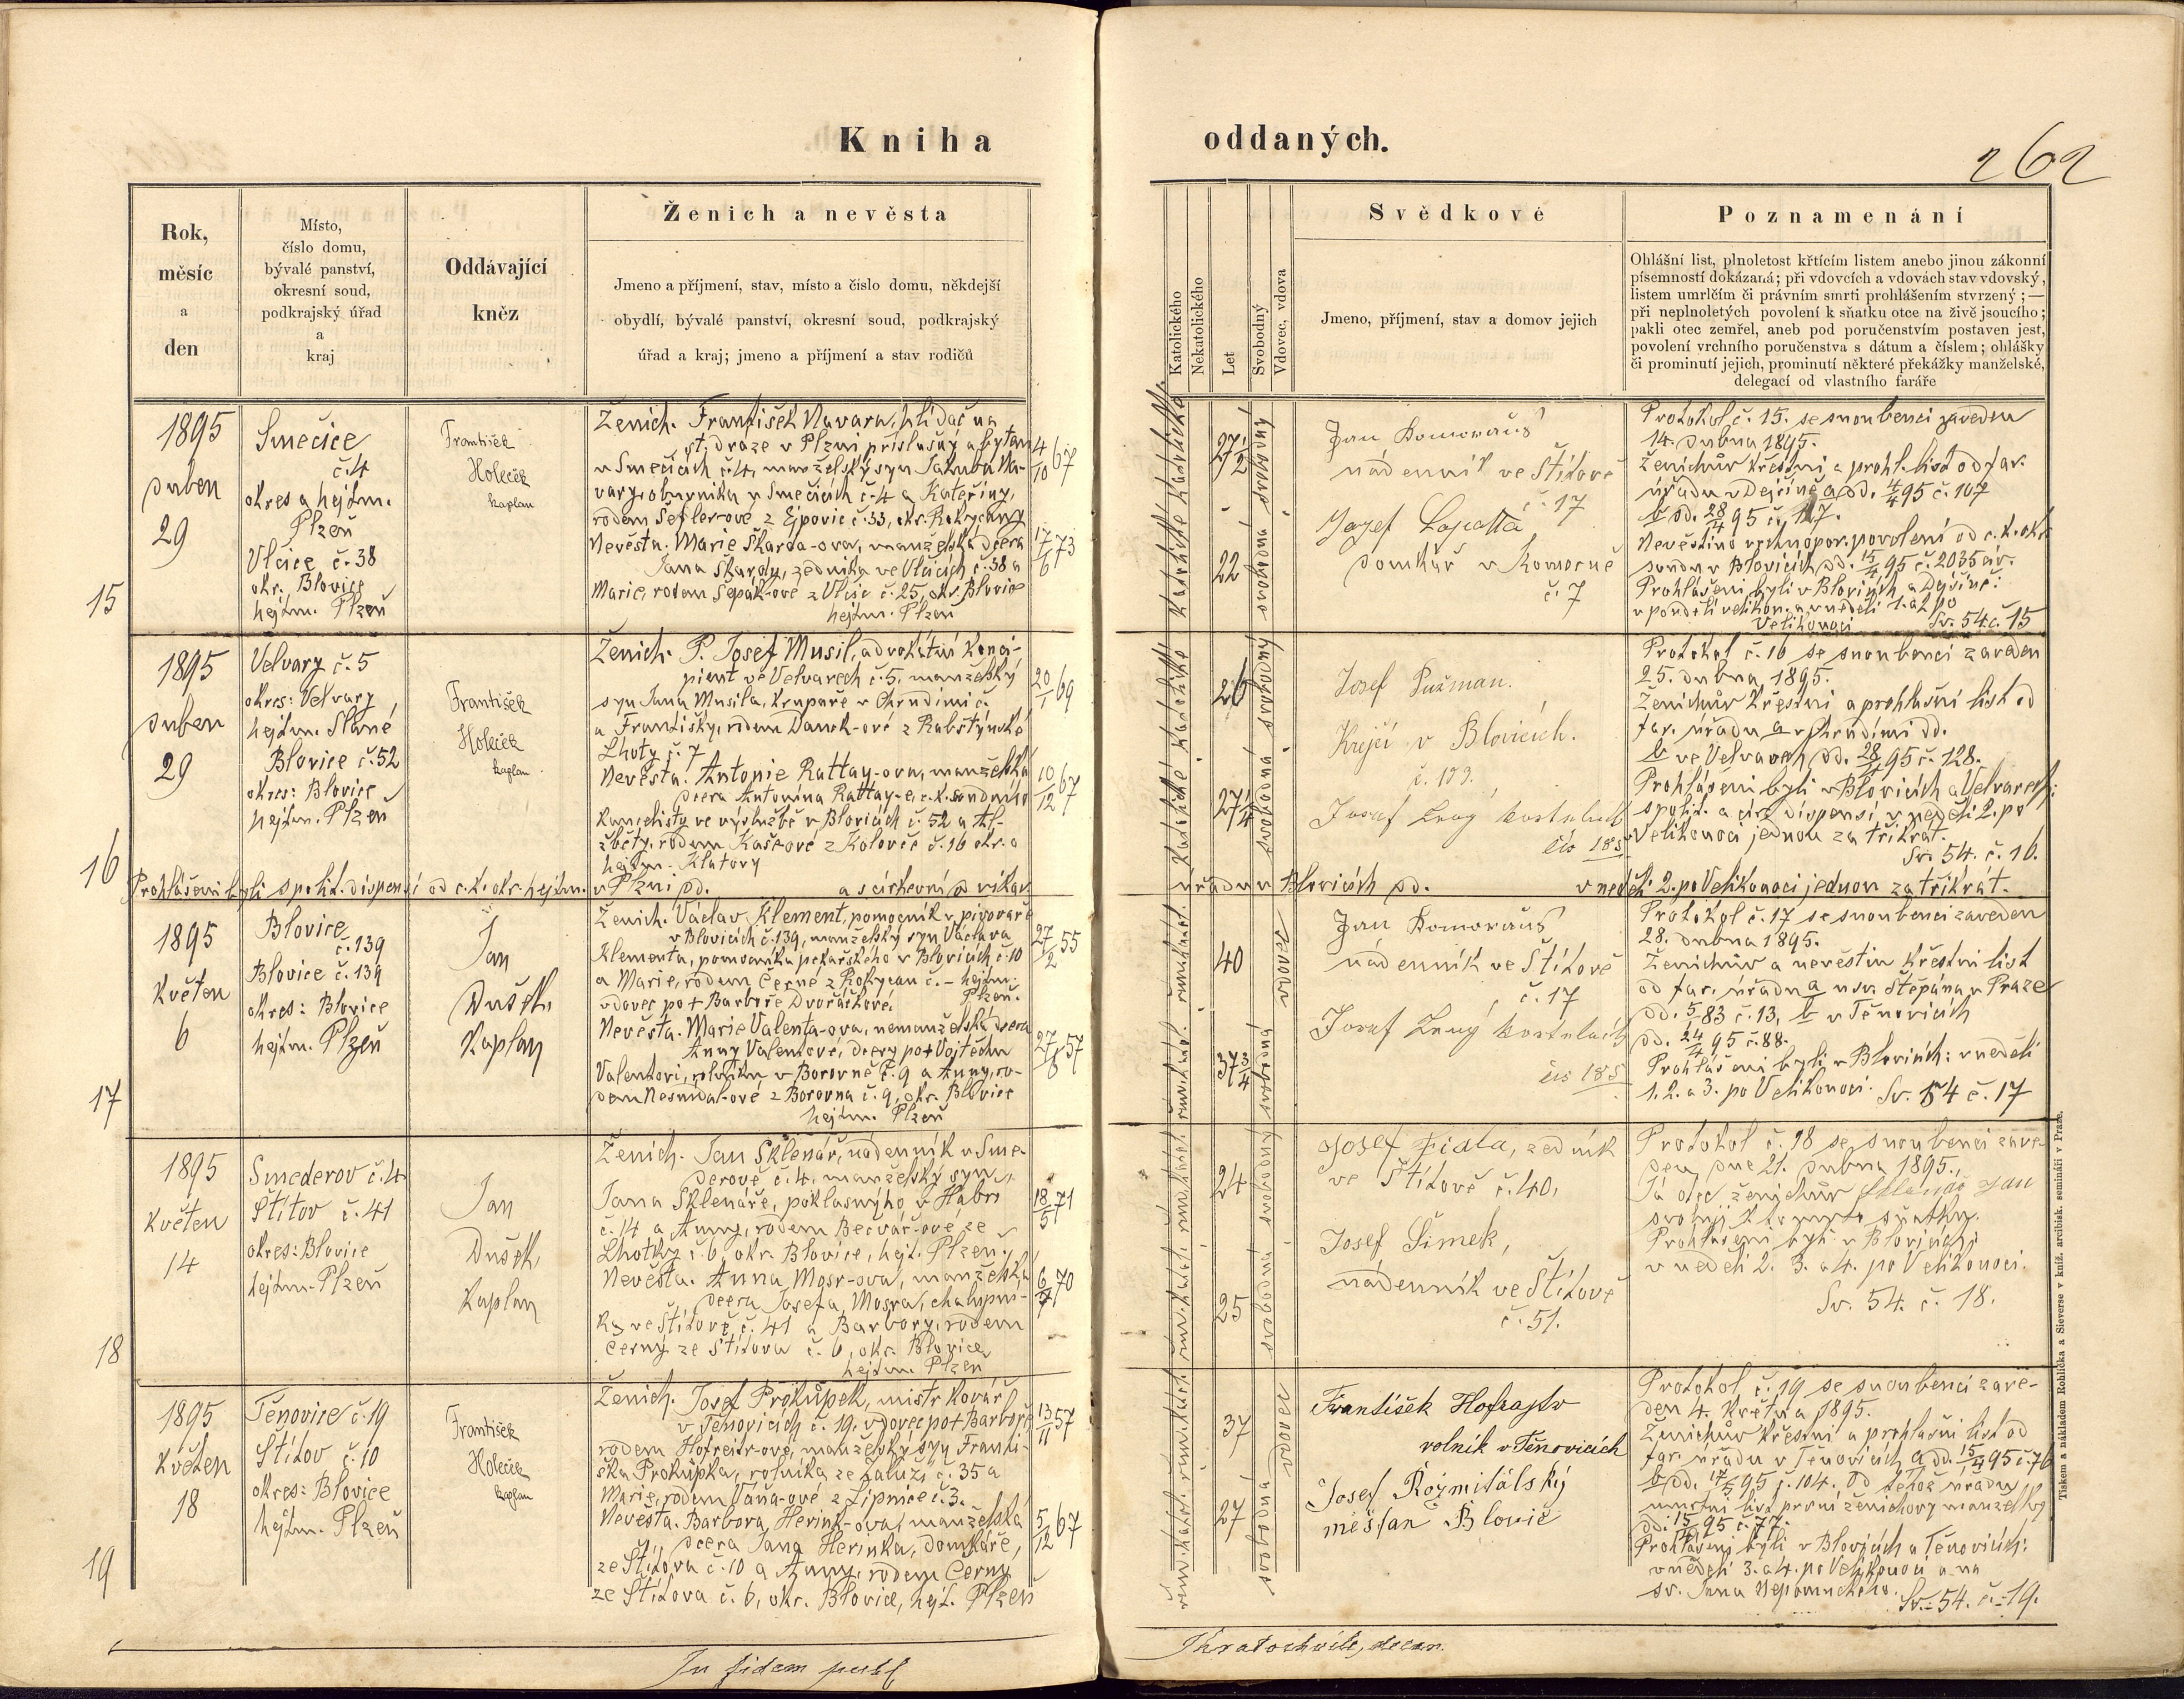 Kniha
oddaných.
262
Rok,
měsíc
a
den
Místo,
číslo domu,
bývalé panství,
okresní soud,
podkrajský úřad
a
kraj
Oddávající
kněz
Ženich a nevěsta
Jmeno a příjmení, stav, místo a číslo domu, někdejší
obydlí, bývalé panství, okresní soud, podkrajský
úřad a kraj; jmeno a příjmení a stav rodičů
Katolického
Nekatolického
Let
Svobodný
Vdovec, vdova
Svědkové
Jmeno, příjmení, stav a domov jejich
Poznamenání
Ohlášní list, plnoletost křtícím listem anebo jinou zákonní
písemností dokázaná; při vdovcích a vdovách stav vdovský,
listem umrlčím či právním smrti prohlášením stvrzený; —
při neplnoletých povolení k sňatku otce na živě jsoucího;
pakli otec zemřel, aneb pod poručenstvím postaven jest,
povolení vrchního poručenstva s dátum a číslem; ohlášky
či prominutí jejich, prominutí některé překážky manželské,
delegací od vlastního faráře
15
1895
duben
29
Smečice
č. 4
okres a hejtm.
Plzeň
Vlčice č. 38
okr. Blovice
hejtm. Plzeň
František
Holeček
kaplan
Ženich. František Navara, hlídač na
st. dráze v Plzni příslušný a bytem
v Smečicích č. 4, manželský syn Jakuba Na-
vary, obuvníka v Smečicích č. 4 a Kateřiny,
rodem Šeflerové z Ejpovic č. 33, okr. Rokycany
4/10 67
Nevěsta. Marie Škarda-ova, manželská dcera
Jana Škardy, zedníka ve Vlčicích č. 38 a
Marie, rodem Šepák-ové z Vlčic č. 25, okr. Blovice
hejtm. Plzeň
17/6 73
27 1/2
svobodný
22
svobodná
Jan Komorauš
nádenník ve Štítově
č. 17
Jozef Lopatta
domkář v Komorně
č. 7
Protokol č. 15. se snoubenci zaveden
14. dubna 1895.
Ženichův křestní a prohl. list od far.
úřadu v Dejšině a dd. 4/4 95 č. 107
b dd. 28/4 95 č. 127.
Nevěstino vrchnopor. povolení od c. k. okr.
soudu v Blovicích dd. 15/4 95 č. 2035 civ.
Prohlášeni byli v Blovicích a Dejšině:
v pondělí velikon. a v neděli 1. a 2. po
Velikonoci. Sv. 54 č. 15
16
1895
duben
29
Velvary č. 5
okres: Velvary
hejtm. Slané
Blovice č. 52
okres: Blovice
hejtm. Plzeň
František
Holeček
kaplan
Ženich. P. Josef Musil, advokátní konci-
pient ve Velvarech č. 5, manželský
syn Jana Musila, krupaře v Chrudimi č.
a Františky, rodem Danek-ové z Rabštýnské
Lhoty č. 7
20/1 69
Nevěsta. Antonie Rattay-ova, manželská
dcera Antonína Rattay-e, c. k. soudního
kancelisty ve výslužbě v Blovicích č. 52 a Al-
žběty, rodem Kašeové z Kolovče č. 16 okr. a
hejtm. Klatovy
10/12 67
26
svobodný
27 1/4
svobodná
Josef Pužman.
Krejčí v Blovicích.
č. 109.
Josef Lang kostelník
čis 185
Protokol č. 16 se snoubenci zaveden
25. dubna 1895.
Ženichův křestní a prohlašní list od
far. úřadu a v Chrudimi dd.
b ve Velvarech dd. 28/4 95 č. 128.
Prohlášeni byli v Blovicích a Velvarech:
s polit. a círk. dispensí, v neděli 2. po
Velikonoci jednou za třikrát.
Sv. 54. č. 16.
Prohlášeni byli s polit. dispensí od c. k. okr. hejtm. v Plzni dd. a s církevní od vikar.
úřadu v Blovicích dd. v neděli 2. po Velikonoci jednou za třikrát.
17
1895
Květen
6
Blovice
č. 139
Blovice č. 139
okres: Blovice
hejtm. Plzeň
Jan
Dušek,
Kaplan
Ženich. Václav Klement, pomocník v pivovaře
v Blovicích č. 139, manželský syn Václava
Klementa, pomocníka pekařského v Blovicích č. 10
a Marie, rodem Černé z Rokycan č. – hejtm.
vdovec po † Barboře Dvořáčkové. Plzeň.
27/2 55
Nevěsta. Marie Valenta-ova, nemanželská dcera
Anny Valentové, dcery po † Vojtěchu
Valentovi, rolníku v Borovně č. 9 a Anny, ro-
dem Nesnídal-ové z Borovna č. 9, okr. Blovice
hejtm. Plzeň
27/8 57
40
vdovec
37 3/4
svobodná
Jan Komorauš
nádenník ve Štítově
č. 17
Josef Lang kostelník
čis 185
Protokol č. 17 se snoubenci zaveden
28. dubna 1895.
Ženichův a nevěstin křestní list
od far. úřadu a u sv. Štěpána v Praze
dd. 5/5 83 č. 13, b v Těnovicích
dd. 24/4 95 č. 88.
Prohlášeni byli v Blovicích: v neděli
1. 2. a 3. po Velikonoci. Sv. 54 č. 17
18
1895
Květen
14
Smederov č. 4
Štítov č. 41
okres: Blovice
hejtm. Plzeň
Jan
Dušek,
Kaplan
Ženich. Jan Sklenář, nádenník v Sme-
derově č. 4, manželský syn
Jana Sklenáře, poklasného v Hábří
č. 14 a Anny, rodem Bečvář-ové ze
Lhotky č. 6, okr. Blovice, hejt. Plzeň.
18/5 71
Nevěsta. Anna Mosr-ova, manželská
dcera Josefa Mosra, chalupní-
ka ve Štítově č. 41 a Barbory, rodem
Černý ze Štítova č. 6, okr. Blovice,
hejtm. Plzeň
6/7 70
24
svobodný
25
svobodná
Josef Fiala, zedník
ve Štítově č. 40,
Josef Šimek,
nádenník ve Štítově
č. 51.
Protokol č. 18 se snoubenci zave-
den dne 21. dubna 1895.
Já otec ženichův Sklenář Jan
svoluji k tomuto sňatku.
Prohlášeni byli v Blovicích:
v neděli 2. 3. a 4. po Velikonoci.
Sv. 54. č. 18.
19
1895
Květen
18
Těnovice č. 19
Štítov č. 10
okres: Blovice
hejtm. Plzeň
František
Holeček
kaplan
Ženich. Josef Prokůpek, mistr kovář
v Těnovicích č. 19. vdovec po † Barboře
rodem Hofreitr-ové, manželský syn Franti-
ška Prokůpka, rolníka ze Zaluží č. 35 a
Marie, rodem Váňa-ové z Lipnice č. 3.
13/11 57
Nevěsta. Barbora Herink-ova, manželská
dcera Jana Herinka, domkáře,
ze Štítova č. 10 a Anny, rodem Černý
ze Štítova č. 6, okr. Blovice, hejt. Plzeň
5/12 67
37
vdovec
27
svobodná
František Hofrajtr
rolník v Těnovicích
Josef Rožmitálský
měšťan Blovic
Protokol č. 19 se snoubenci zave-
den 4. Května 1895.
Ženichův křestní a prohlašní list od
far. úřadu v Těnovicích a dd. 15/4 95 č. 76
b dd. 17/5 95 č. 104. Od téhož úřadu
úmrtní list první ženichovy manželky
dd. 15/4 95 č. 77.
Prohlášeni byli v Blovicích a Těnovicích:
v neděli 3. a 4. po Velikonoci a na
sv. Jana Nepomuckého. Sv. 54. č. 19.
In fidem publ
JKratochvíle, decan.
Tiskem a nákladem Rohlíčka a Sieverse v kníž. arcibisk. semináři v Praze.